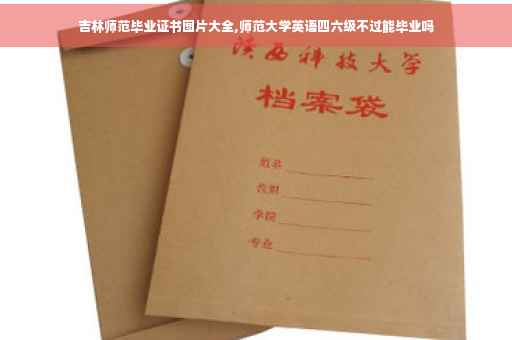 吉林师范毕业证书图片大全,师范大学英语四六级不过能毕业吗
陕西科技大学
档案袋
姓名
学院
专业